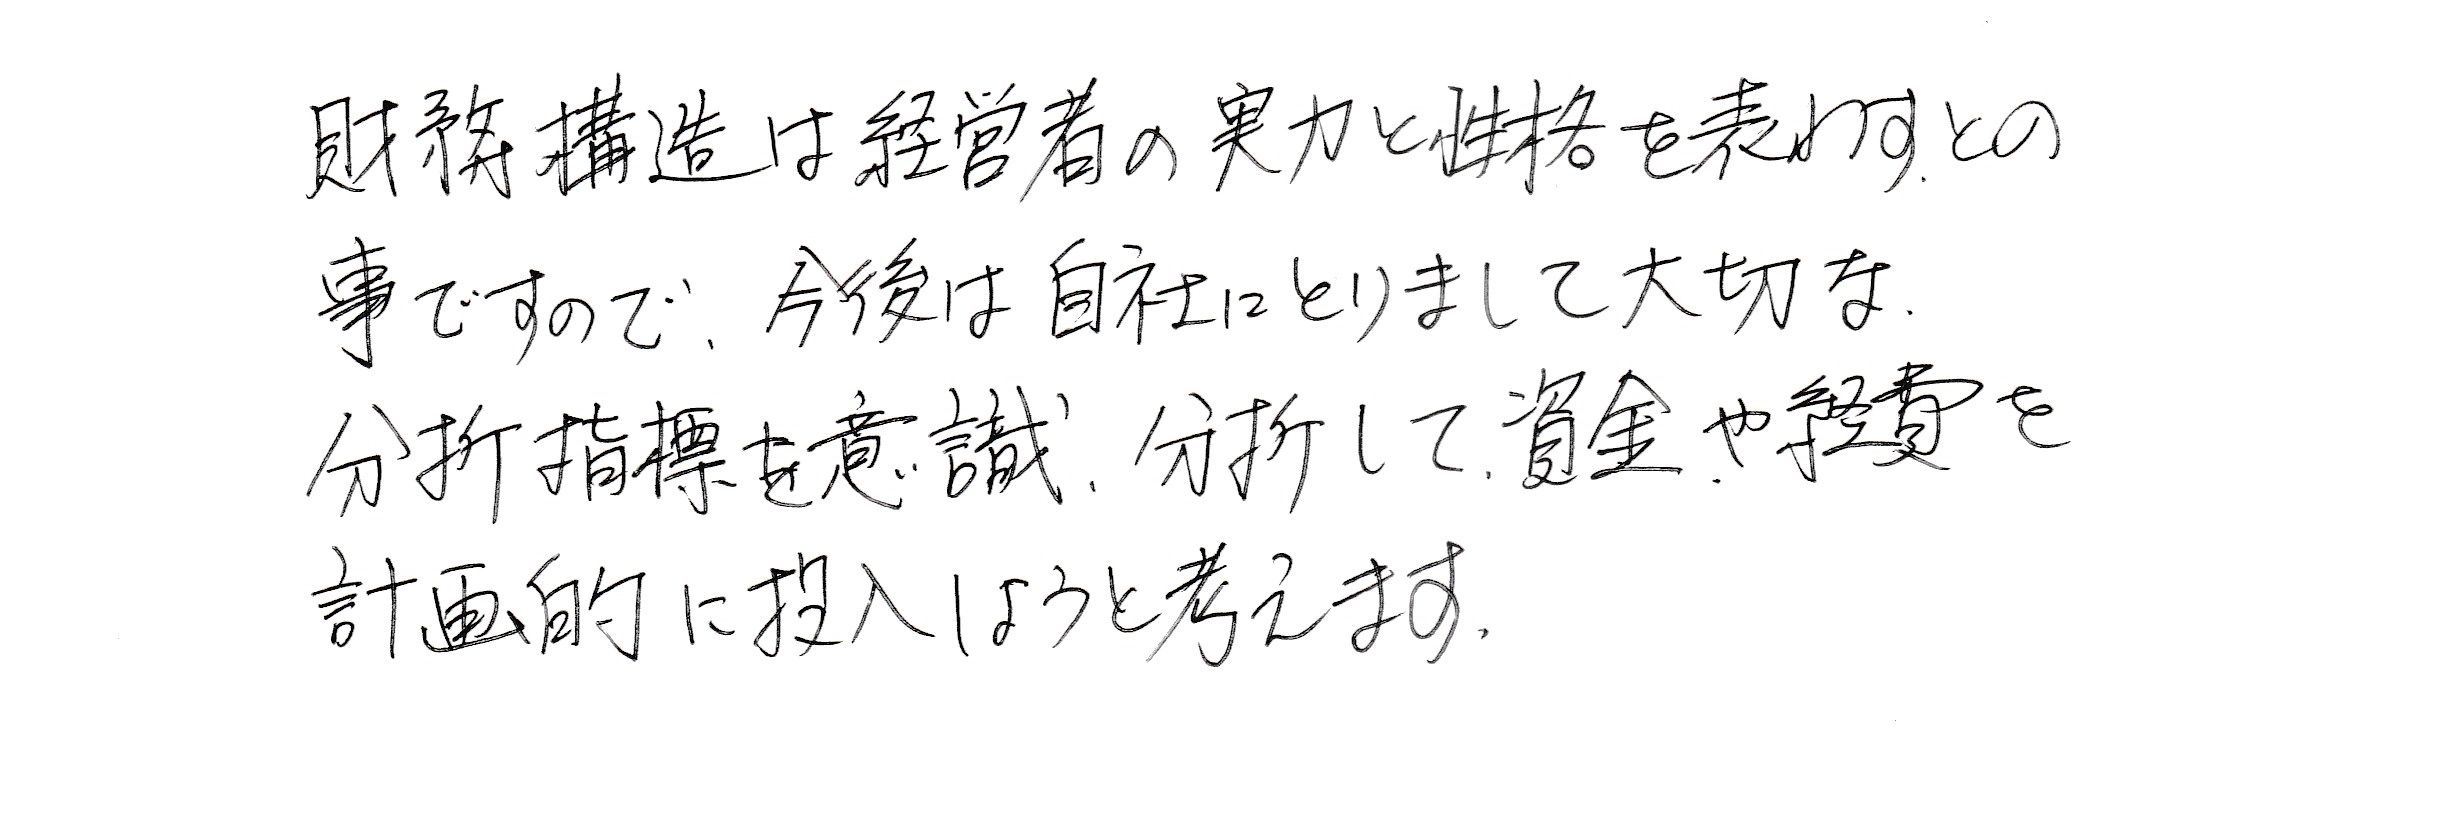 財務構造は経営者の実力と性格を表わす、との
事ですので、今後は自社にとりまして大切な、
分析指標を意識、分析して、資金や経費を
計画的に投入しようと考えます。